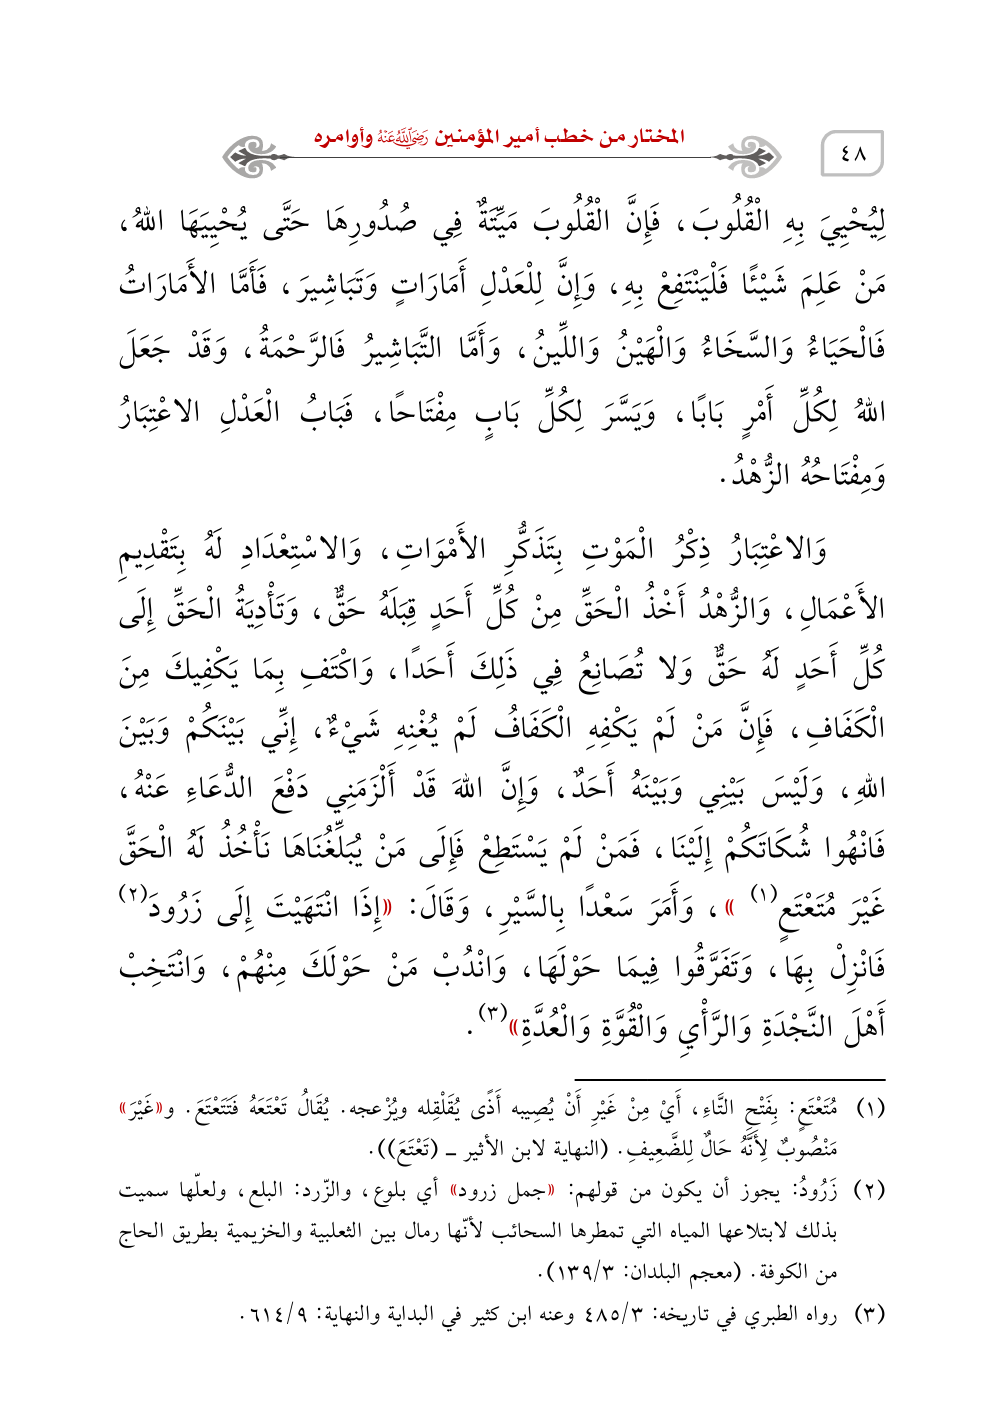 ٤٨
المختار من خطب أمير المؤمنين رَضِيَ اللَّهُ عَنْهُ وأوامره
لِيُحْيِيَ بِهِ الْقُلُوبَ، فَإِنَّ الْقُلُوبَ مَيِّتَةٌ فِي صُدُورِهَا حَتَّى يُحْيِيَهَا اللهُ،
مَنْ عَلِمَ شَيْئًا فَلْيَنْتَفِعْ بِهِ، وَإِنَّ لِلْعَدْلِ أَمَارَاتٍ وَتَبَاشِيرَ، فَأَمَّا الأَمَارَاتُ
فَالْحَيَاءُ وَالسَّخَاءُ وَالْهَيْنُ وَاللِّينُ، وَأَمَّا التَّبَاشِيرُ فَالرَّحْمَةُ، وَقَدْ جَعَلَ
اللهُ لِكُلِّ أَمْرٍ بَابًا، وَيَسَّرَ لِكُلِّ بَابٍ مِفْتَاحًا، فَبَابُ الْعَدْلِ الاعْتِبَارُ
وَمِفْتَاحُهُ الزُّهْدُ.
وَالاعْتِبَارُ ذِكْرُ الْمَوْتِ بِتَذَكُّرِ الأَمْوَاتِ، وَالاسْتِعْدَادِ لَهُ بِتَقْدِيمِ
الأَعْمَالِ، وَالزُّهْدُ أَخْذُ الْحَقِّ مِنْ كُلِّ أَحَدٍ قِبَلَهُ حَقٌّ، وَتَأْدِيَةُ الْحَقِّ إِلَى
كُلِّ أَحَدٍ لَهُ حَقٌّ وَلا تُصَانِعُ فِي ذَلِكَ أَحَدًا، وَاكْتَفِ بِمَا يَكْفِيكَ مِنَ
الْكَفَافِ، فَإِنَّ مَنْ لَمْ يَكْفِهِ الْكَفَافُ لَمْ يُغْنِهِ شَيْءٌ، إِنِّي بَيْنَكُمْ وَبَيْنَ
اللهِ، وَلَيْسَ بَيْنِي وَبَيْنَهُ أَحَدٌ، وَإِنَّ اللهَ قَدْ أَلْزَمَنِي دَفْعَ الدُّعَاءِ عَنْهُ،
فَانْهُوا شُكَاتَكُمْ إِلَيْنَا، فَمَنْ لَمْ يَسْتَطِعْ فَإِلَى مَنْ يُبَلِّغُنَاهَا نَأْخُذُ لَهُ الْحَقَّ
غَيْرَ مُتَعْتَعٍ(١) »، وَأَمَرَ سَعْدًا بِالسَّيْرِ، وَقَالَ: «إِذَا انْتَهَيْتَ إِلَى زَرُودَ(٢)
فَانْزِلْ بِهَا، وَتَفَرَّقُوا فِيمَا حَوْلَهَا، وَانْدُبْ مَنْ حَوْلَكَ مِنْهُمْ، وَانْتَخِبْ
أَهْلَ النَّجْدَةِ وَالرَّأْيِ وَالْقُوَّةِ وَالْعُدَّةِ»(٣).
(١) مُتَعْتَعٍ: بِفَتْحِ التَّاءِ، أَيْ مِنْ غَيْرِ أَنْ يُصِيبه أَذًى يُقَلْقِله ويُزْعجه. يُقَالُ تَعْتَعَهُ فَتَتَعْتَعَ. و«غَيْرَ»
مَنْصُوبٌ لِأَنَّهُ حَالٌ لِلضَّعِيفِ. (النهاية لابن الأثير ـ (تَعْتَعَ)).
(٢) زَرُودُ: يجوز أن يكون من قولهم: «جمل زرود» أي بلوع، والزّرد: البلع، ولعلّها سميت
بذلك لابتلاعها المياه التي تمطرها السحائب لأنّها رمال بين الثعلبية والخزيمية بطريق الحاج
من الكوفة. (معجم البلدان: ١٣٩/٣).
(٣) رواه الطبري في تاريخه: ٤٨٥/٣ وعنه ابن كثير في البداية والنهاية: ٦١٤/٩.